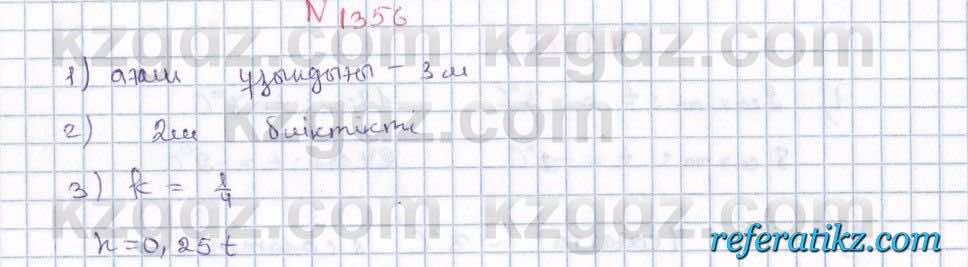 N 1356
1) ағаш ұзындығы - 3 м
2) 2м биіктікті
3) k = 1/4
h = 0,25 t
kzgdz.com kzgdz.com
kzgdz.com
kzgdz.com kzgdz.com
referatikz.com